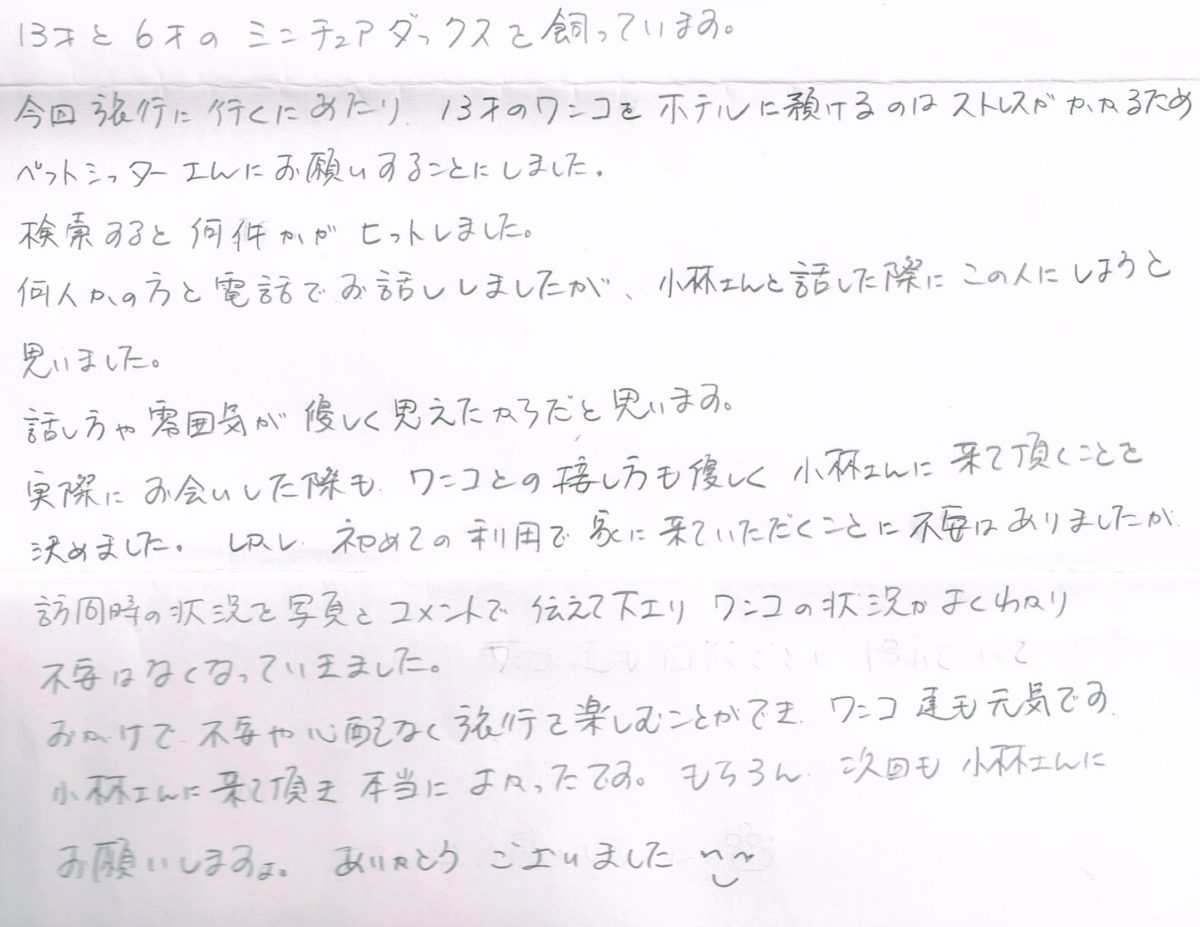 13才と6才のミニチュアダックスを飼っています。
今回旅行に行くにあたり、13才のワンコをホテルに預けるのはストレスがかかるため
ペットシッターさんにお願いすることにしました。
検索すると何件かがヒットしました。
何人かの方と電話でお話ししましたが、小林さんと話した際にこの人にしようと
思いました。
話し方や雰囲気が優しく思えたからだと思います。
実際にお会いした際も、ワンコとの接し方も優しく小林さんに来て頂くことを
決めました。しかし、初めての利用で家に来ていただくことに不安はありましたが
訪問時の状況を写真とコメントで伝えて下さりワンコの状況がよくわかり
不安はなくなっていきました。
おかげで、不安や心配なく旅行を楽しむことができ、ワンコ達も元気です。
小林さんに来て頂き本当によかったです。もちろん、次回も小林さんに
お願いしますよ。ありがとうございました